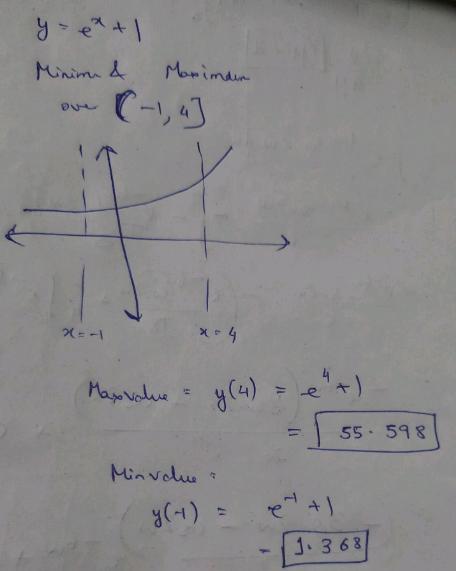 y = eˣ + 1
Minima & Maximum
over (-1, 4]
x = -1
x = 4
Max value = y(4) = e⁴ + 1
= 55.598
Min value =
y(-1) = e⁻¹ + 1
= 1.368